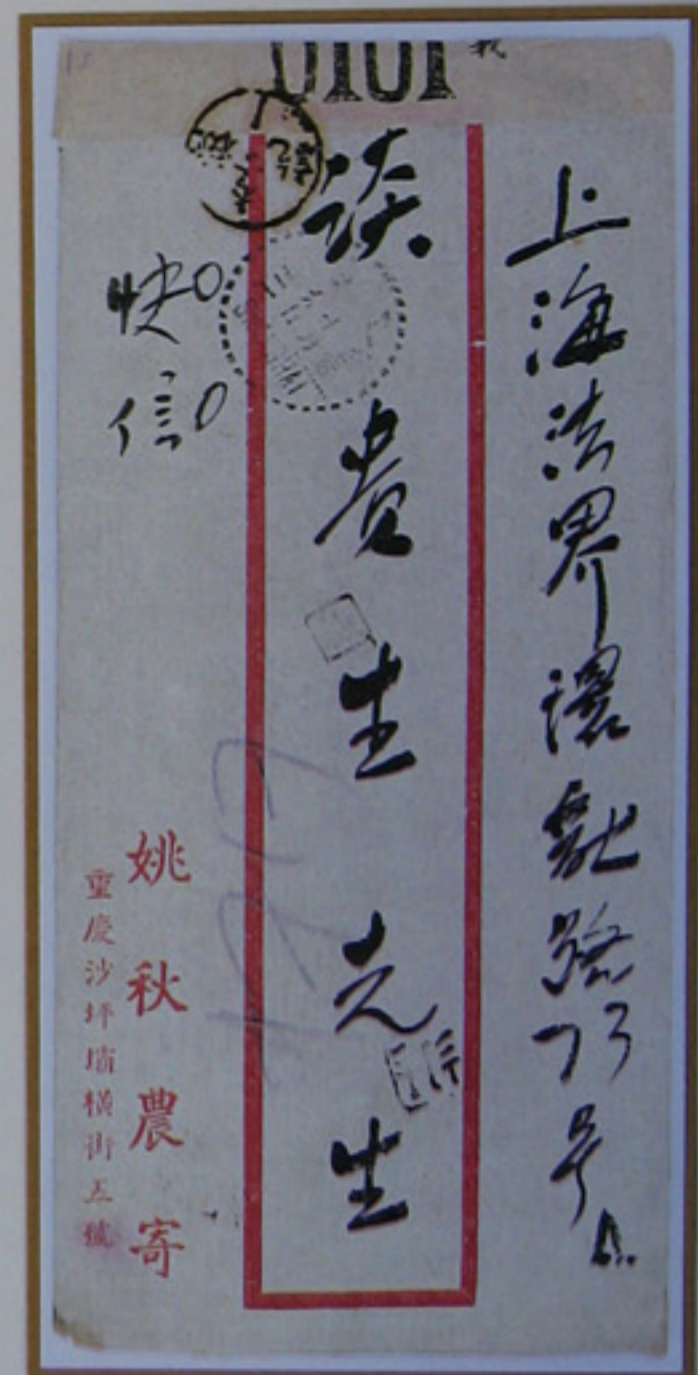 上海法界環龍路73号
談貴生先生
快信
姚秋農寄
重慶沙坪壩橫街五號